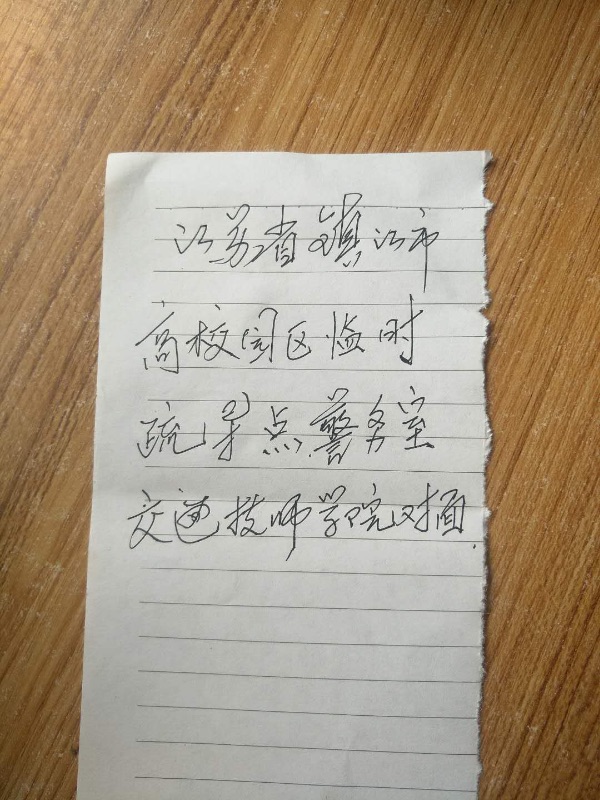 江苏省镇江市
高校园区临时
疏导点警务室
交通技师学院对面.